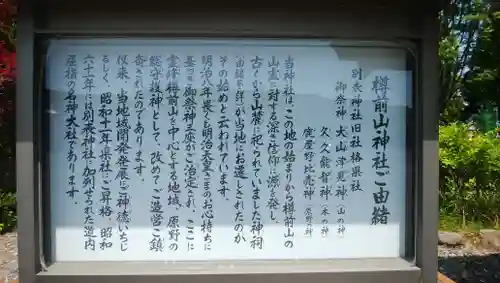 樽前山神社ご由緒
別表神社旧社格県社
御祭神 大山津見神(山の神)
久久能智神(木の神)
鹿屋野比売神(原野の神)
当神社は、この地の始まりから樽前山の
山霊に対する深き信仰に源を発し、
古くから山麓に祀られていました神祠
が当地にお遷しされたのが
その始めと云われています。
明治八年畏くも明治天皇さまのお心持ちに
基づき御祭神三座がご治定され、ここに
霊峰樽前山を中心とする地域、原野の
総守護神として、改めてご造営ご鎮
斎されたのであります。
以来、当地域開発発展にご神徳いちじ
るしく、昭和十一年県社にご昇格、昭和
六十一年には別表神社に加列せられた道内
屈指の名神大社であります。